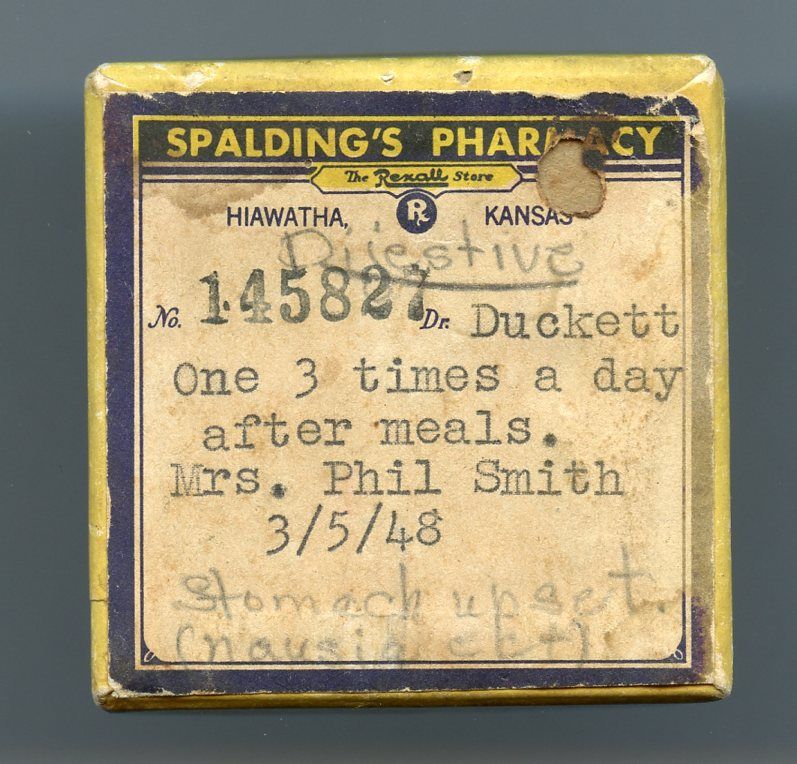 SPALDING'S PHARMACY
The Rexall Store
HIAWATHA, Rx KANSAS
Dijestive
No. 145827 Dr. Duckett
One 3 times a day
after meals.
Mrs. Phil Smith
3/5/48
Stomach upset.
(nausia ect).